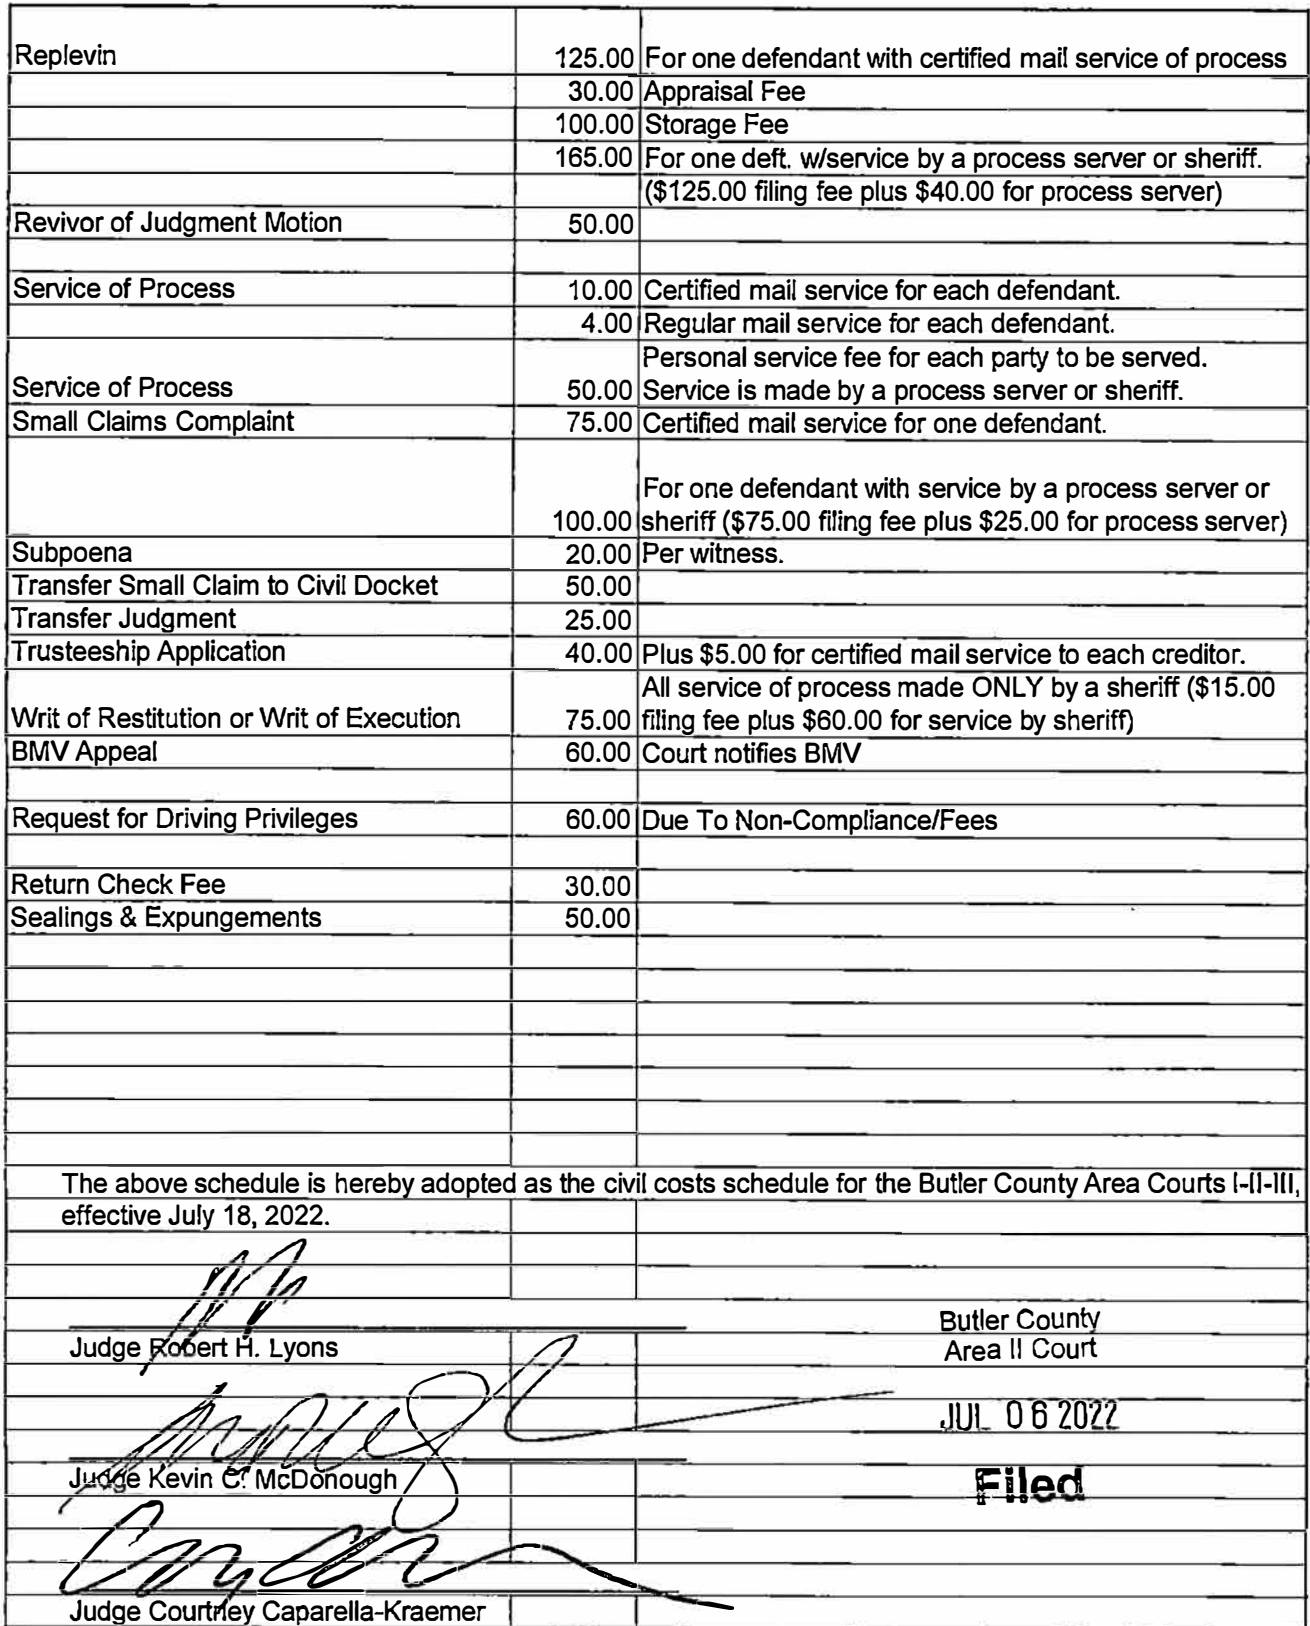 Replevin 125.00 For one defendant with certified mail service of process
30.00 Appraisal Fee
100.00 Storage Fee
165.00 For one deft. w/service by a process server or sheriff.
($125.00 filing fee plus $40.00 for process server)
Revivor of Judgment Motion 50.00
Service of Process 10.00 Certified mail service for each defendant.
4.00 Regular mail service for each defendant.
Personal service fee for each party to be served.
Service of Process 50.00 Service is made by a process server or sheriff.
Small Claims Complaint 75.00 Certified mail service for one defendant.
For one defendant with service by a process server or
100.00 sheriff ($75.00 filing fee plus $25.00 for process server)
Subpoena 20.00 Per witness.
Transfer Small Claim to Civil Docket 50.00
Transfer Judgment 25.00
Trusteeship Application 40.00 Plus $5.00 for certified mail service to each creditor.
All service of process made ONLY by a sheriff ($15.00
Writ of Restitution or Writ of Execution 75.00 filing fee plus $60.00 for service by sheriff)
BMV Appeal 60.00 Court notifies BMV
Request for Driving Privileges 60.00 Due To Non-Compliance/Fees
Return Check Fee 30.00
Sealings & Expungements 50.00
The above schedule is hereby adopted as the civil costs schedule for the Butler County Area Courts I-II-III,
effective July 18, 2022.
Butler County
Judge Robert H. Lyons Area II Court
JUL 06 2022
Judge Kevin C. McDonough Filed
Judge Courtney Caparella-Kraemer